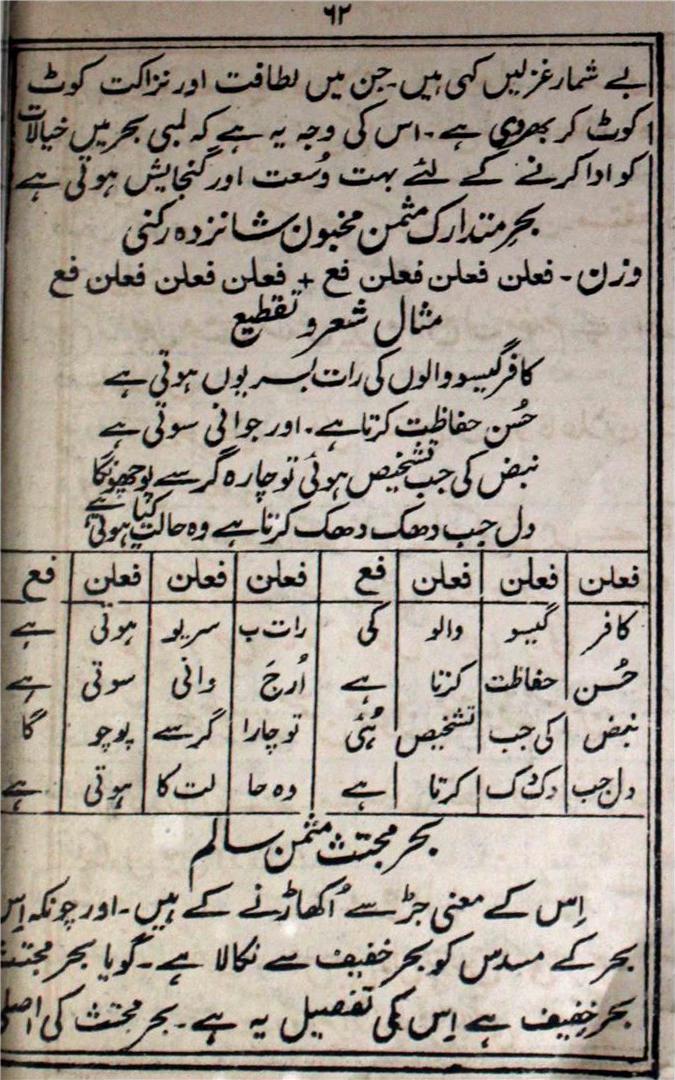 ۶۲
بے شمار غزلیں کہی ہیں۔ جن میں لطافت اور نزاکت کوٹ
کوٹ کر بھر دی ہے۔ اس کی وجہ یہ ہے کہ لمبی بحر میں خیالات
کو ادا کرنے کے لئے بہت وُسعت اور گنجایش ہوتی ہے
بحرِ متدارک مثمن مخبون شانزدہ رکنی
وزن۔ فعلن فعلن فعلن فع + فعلن فعلن فعلن فع
مثال شعر و تقطیع
کافر گیسو والوں کی رات بسر یوں ہوتی ہے
حُسن حفاظت کرتا ہے۔ اور جوانی سوتی ہے
نبض کی جب تشخیص ہوئی تو چارہ گر سے پوچھونگا
دل جب دھک دھک کرتا ہے وہ حالت کیا ہوتی ہے
فعلن فعلن فعلن فع فعلن فعلن فعلن فع
کافر گیسو والو کی رات ب سر یو ہوتی ہے
حُسن حفاظت کرتا ہے اُرجَ وانی سوتی ہے
نبض کی جب تشخیص ہُئی تو چارا گر سے پوچو گا
دل جب دک دک کرتا ہے وہ حا لت کا ہوتی ہے
بحر مجتث مثمن سالم
اِس کے معنی جڑ سے اُکھاڑنے کے ہیں۔ اور چونکہ اِس
بحر کے مسدس کو بحر خفیف سے نکالا ہے۔ گویا بحر مجتث
بحر خفیف ہے اِس کی تفصیل یہ ہے۔ بحر مجتث کی اصلی